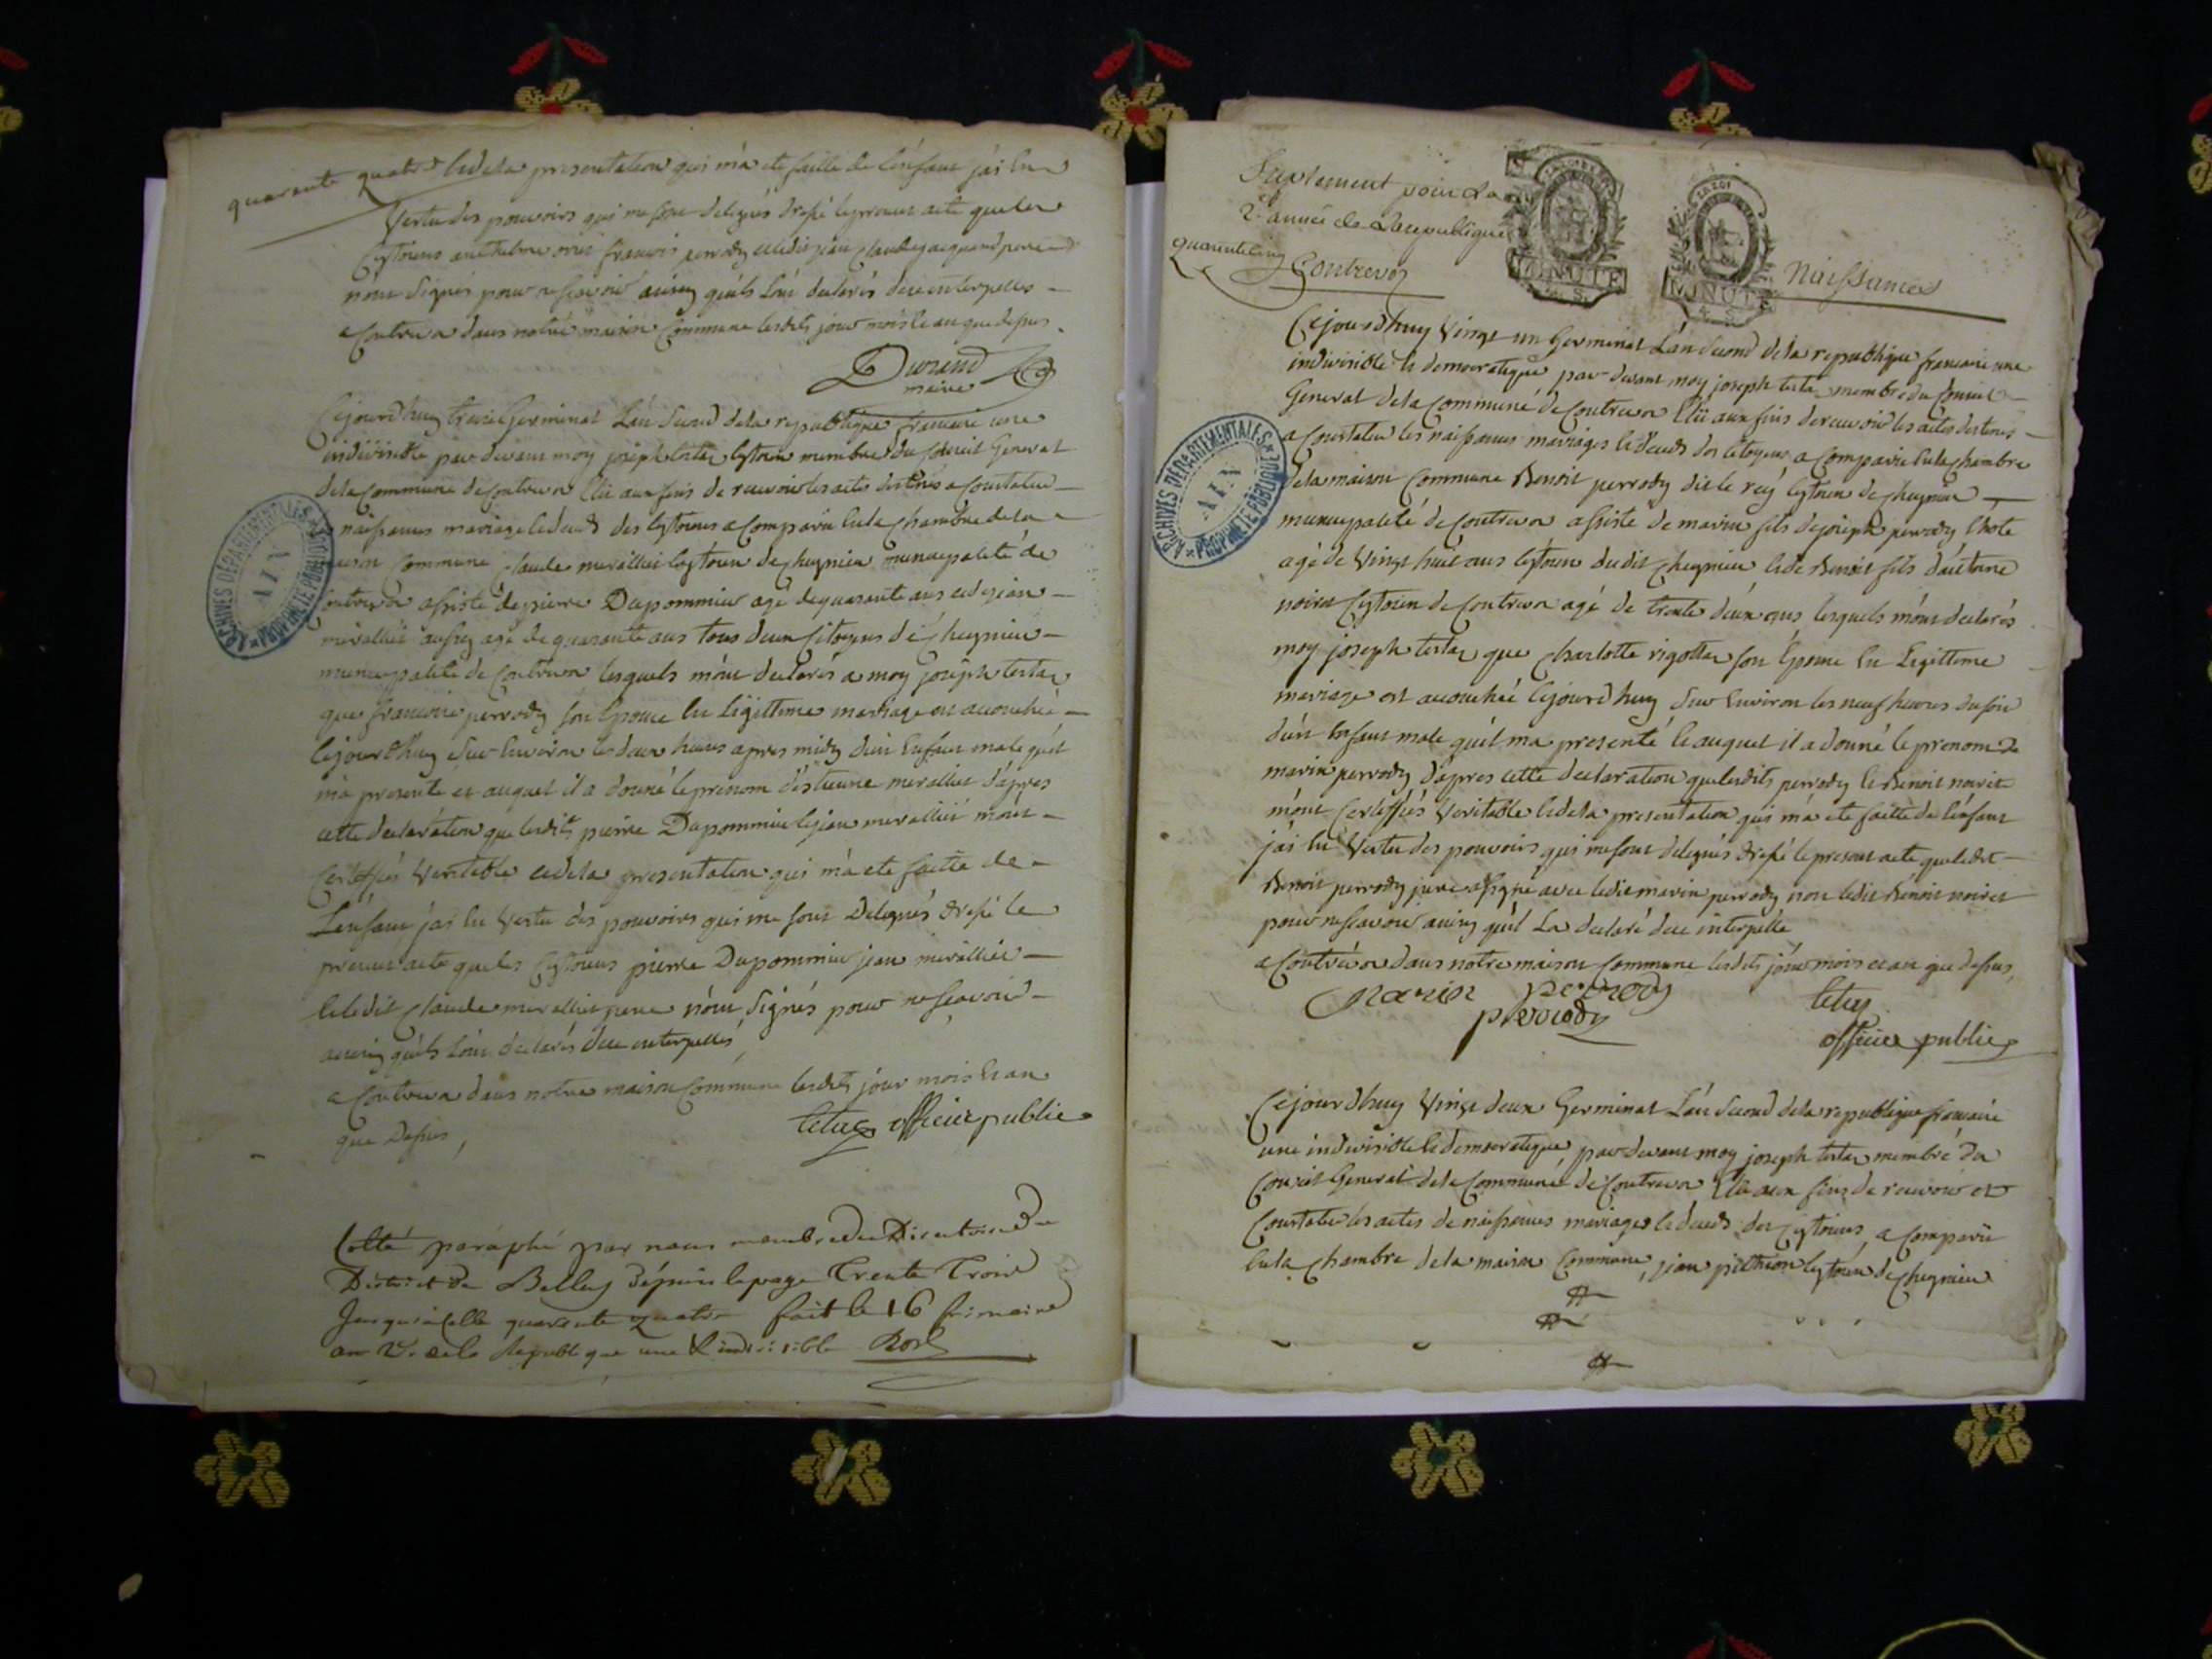 quarante quatre
et de la presentation qui m'a eté faitte de l'énfant j'ai En
Vertu des pouvoirs qui me sont delegués dressé le present acte que les
Cytoiens anthelme françois perrody et ledit jean Claude pere
n'ont signés pour ne scavoir ainsy qu'ils l'ont declarés de ce interpellés
a Contrevoz dans notre maison Commune lesdits jour mois et an que dessus.
Durand
maire
Cejourdhuy treize Germinal L'an Second de la republique francaise une
indivisible par devant moy joseph tertaz Cytoien membre du Conseil General
de la Commune de Contrevoz Elû aux fins de recevoir les actes destinés a Constater
naissances mariage et deceds des Cytoiens a Comparu En la Chambre de la
maison Commune Claude mirallier Cytoien de Cheynieu municipalité de
Contrevoz assisté de pierre Dupommier agé de quarante ans et de jean
mirallier aussy agé de quarante ans tous deux Citoyens de Cheynieu
municipalité de Contrevoz lesquels m'ont declarés a moy joseph tertaz
que francoise perrody son Epouse En Légittime mariage est accouchée
Cejourdhuy Sur Environ les deux heures apres midy d'un Enfant male qu'il
m'a presenté et auquel il a donné le prenom d'éstienne mirallier d'apres
cette declaration que lesdits pierre Dupommier et jean mirallier m'ont
Certiffiés Veritable et de la presentation qui m'a eté faitte de
L'enfant j'ai En Vertu des pouvoirs qui me sont Delegués dressé le
present acte que les Cytoiens pierre Dupommier jean mirallier
et ledit Claude mirallier pere n'ont signés pour ne scavoir
ainsy qu'ils l'ont declarés de ce interpellés
a Contrevoz dans notre maison Commune lesdits jour mois et an
que Dessus,
officier public
Cotté paraphé par nous membre du Directoire du
District de Belley depuis la page Trente Trois
Jusqu'à celle quarante quatre fait le 16 frimaire
an 2e. de la Republique une & indivisible
ARCHIVES DÉPARTEMENTALES
AIN
PROPRIÉTÉ PUBLIQUE
Suplement pour La
2e année de la Republique
quarente cinq
Contrevoz
LA LOI
MINUTE
4. S.
LA LOI
MINUTE
4. S.
Naissances
Cejourdhuy Vingt un Germinal L'an Second de la republique francaise une
indivisible et democratique par devant moy joseph tertaz membre du Conseil
General de la Commune de Contrevoz Elû aux fins de recevoir les actes destinés
a Constater les naissances mariages et deceds des Citoyens a Comparu En la Chambre
de la maison Commune Benoit perrody dit le rey Cytoien de Cheynieu
municipalité de Contrevoz assisté de marin fils de joseph perrody l'hote
agé de Vingt huit ans Cytoien dudit Cheynieu et de Benoit fils d'antoine
noiret Cytoien de Contrevoz agé de trente deux ans lesquels m'ont declarés
moy joseph tertaz que Charlotte rigottaz son Epouse En Legittime
mariage est accouchée Cejourdhuy Sur Environ les neuf heures du soir
d'un Enfant male qu'il m'a presenté Et auquel il a donné le prenom de
marin perrody d'apres cette declaration que lesdits perrody et Benoit noiret
m'ont Certiffiés Veritable et de la presentation qui m'a eté faitte de l'enfant
j'ai En Vertu des pouvoirs qui me sont delegués dressé le present acte que ledit
Benoit perrody pere a signé avec ledit marin perrody non ledit Benoit noiret
pour ne scavoir ainsy qu'il L'a declaré de ce interpellé
a Contrevoz dans notre maison Commune lesdits jour mois et an que dessus,
Marin perrody
perrody
officier public
ARCHIVES DÉPARTEMENTALES
AIN
PROPRIÉTÉ PUBLIQUE
Cejourdhuy Vingt deux Germinal L'an Second de la republique francaise
une indivisible et democratique, par devant moy joseph tertaz membre du
Conseil General de la Commune de Contrevoz Elû aux fins de recevoir et
Constater les actes de naissances mariages et deceds des Cytoiens, a Comparu
En la Chambre de la maison Commune, jean Cytoien de Cheynieu